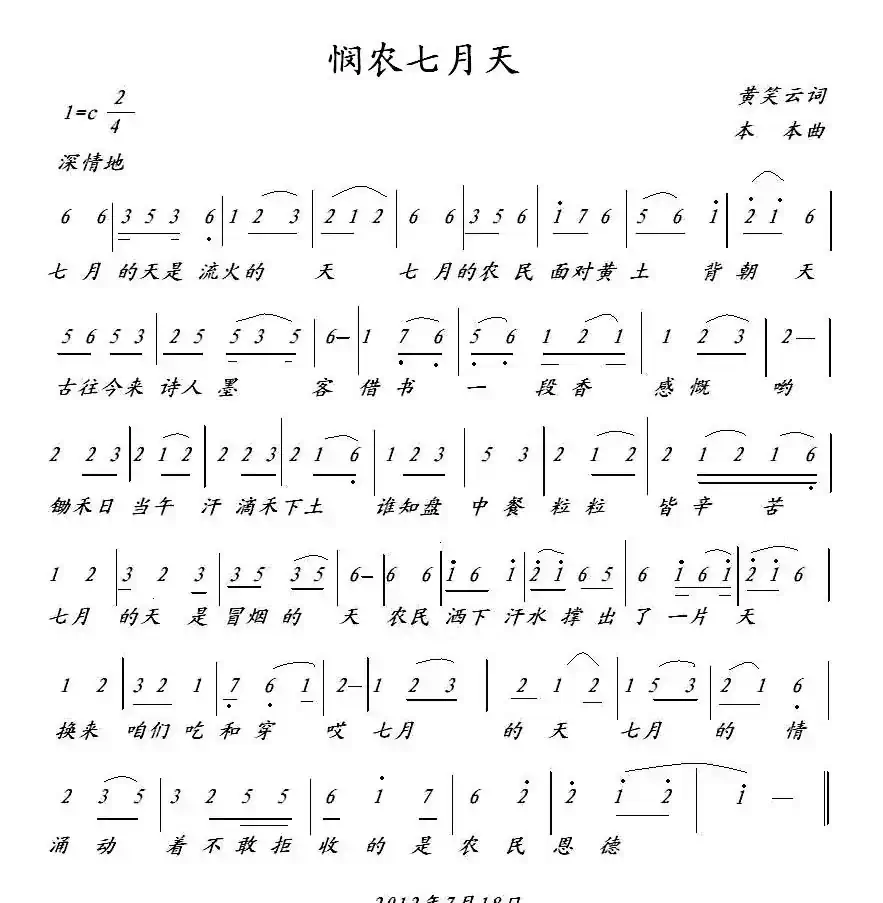 悯农七月天
1=c 2/4
黄笑云词
本 本曲
深情地
6 6 3 5 3 6 1 2 3 2 1 2 6 6 3 5 6 1 7 6 5 6 1 2 1 6
七 月 的天是 流火的 天 七 月的农 民 面对黄 土 背 朝 天
5 6 5 3 2 5 5 3 5 6— 1 7 6 5 6 1 2 1 1 2 3 2—
古往今来 诗人 墨 客 借 书 一 段 香 感 慨 哟
2 2 3 2 1 2 2 2 3 2 1 6 1 2 3 5 3 2 1 2 2 1 2 1 6
锄禾日 当午 汗 滴禾下土 谁知盘 中 餐 粒 粒 皆 辛 苦
1 2 3 2 3 3 5 3 5 6— 6 6 1 6 1 2 1 6 5 6 1 6 1 2 1 6
七月 的天 是 冒烟 的 天 农民 洒下 汗水 撑 出 了 一片 天
1 2 3 2 1 7 6 1 2— 1 2 3 2 1 2 1 5 3 2 1 6
换来 咱们 吃 和 穿 哎 七月 的 天 七月 的 情
2 3 5 3 2 5 5 6 1 7 6 2 2 1 2 1 —
涌 动 着 不 敢 拒 收 的 是 农 民 恩 德
2012年7月18日